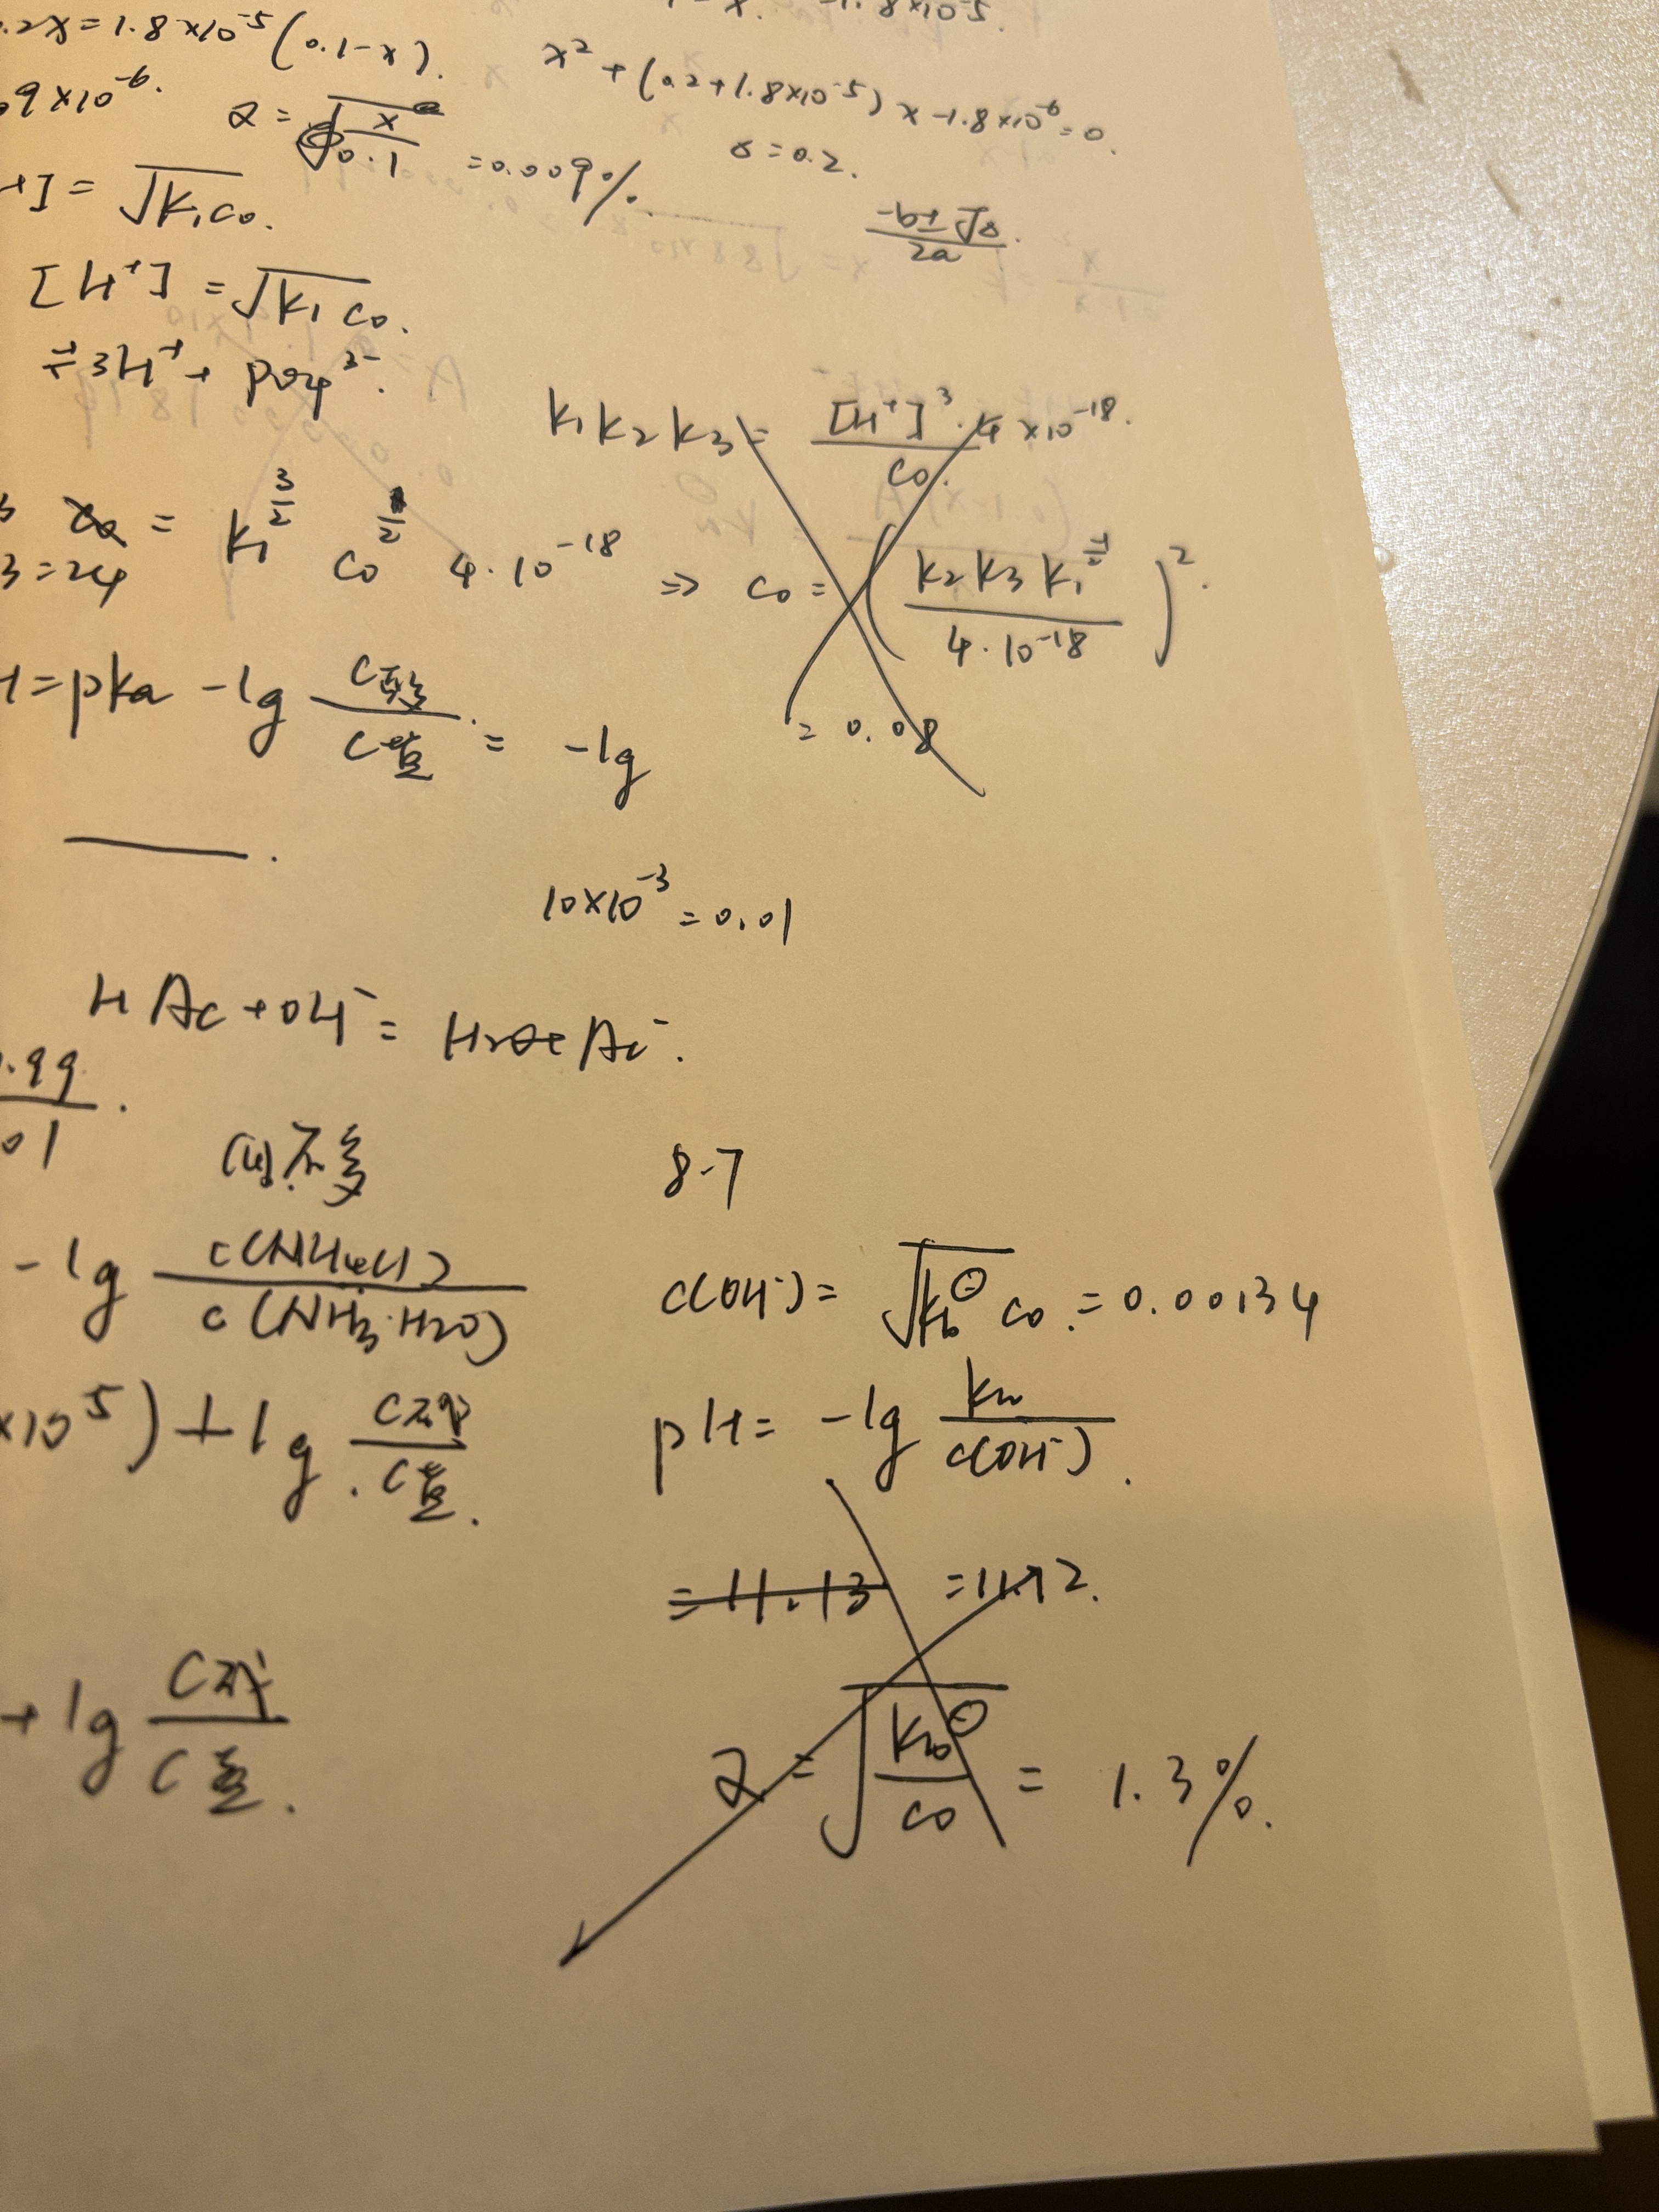 .2x=1.8×10⁻⁵(0.1-x).
x²+(0.2+1.8×10⁻⁵)x-1.8×10⁻⁶=0.
9×10⁻⁶.
α= x/0.1 =0.009%.
Δ=0.2.
+]=√K₁c₀.
-b±√Δ/2a.
[H⁺]=√K₁c₀.
⇌3H⁺+PO₄³⁻.
K₁K₂K₃=[H⁺]³·4×10⁻¹⁸/c₀.
=K₁^(3/2) c₀^(1/2) 4·10⁻¹⁸ ⇒ c₀=(K₂K₃K₁^(-1/2)/4·10⁻¹⁸)².
3=24
=pKa-lg c酸/c盐=-lg
=0.08
10×10⁻³=0.01
HAc+OH⁻=H₂O+Ac⁻.
.99/01.
(4)不多
8-7
-lg c(NH₄Cl)/c(NH₃·H₂O)
c(OH⁻)=√Kb^⊖c₀.=0.00134
×10⁵)+lg c碱/c盐.
pH=-lg Kw/c(OH⁻).
=11.13 =11.12.
+lg c碱/c盐.
α=√Kb^⊖/c₀=1.3%.